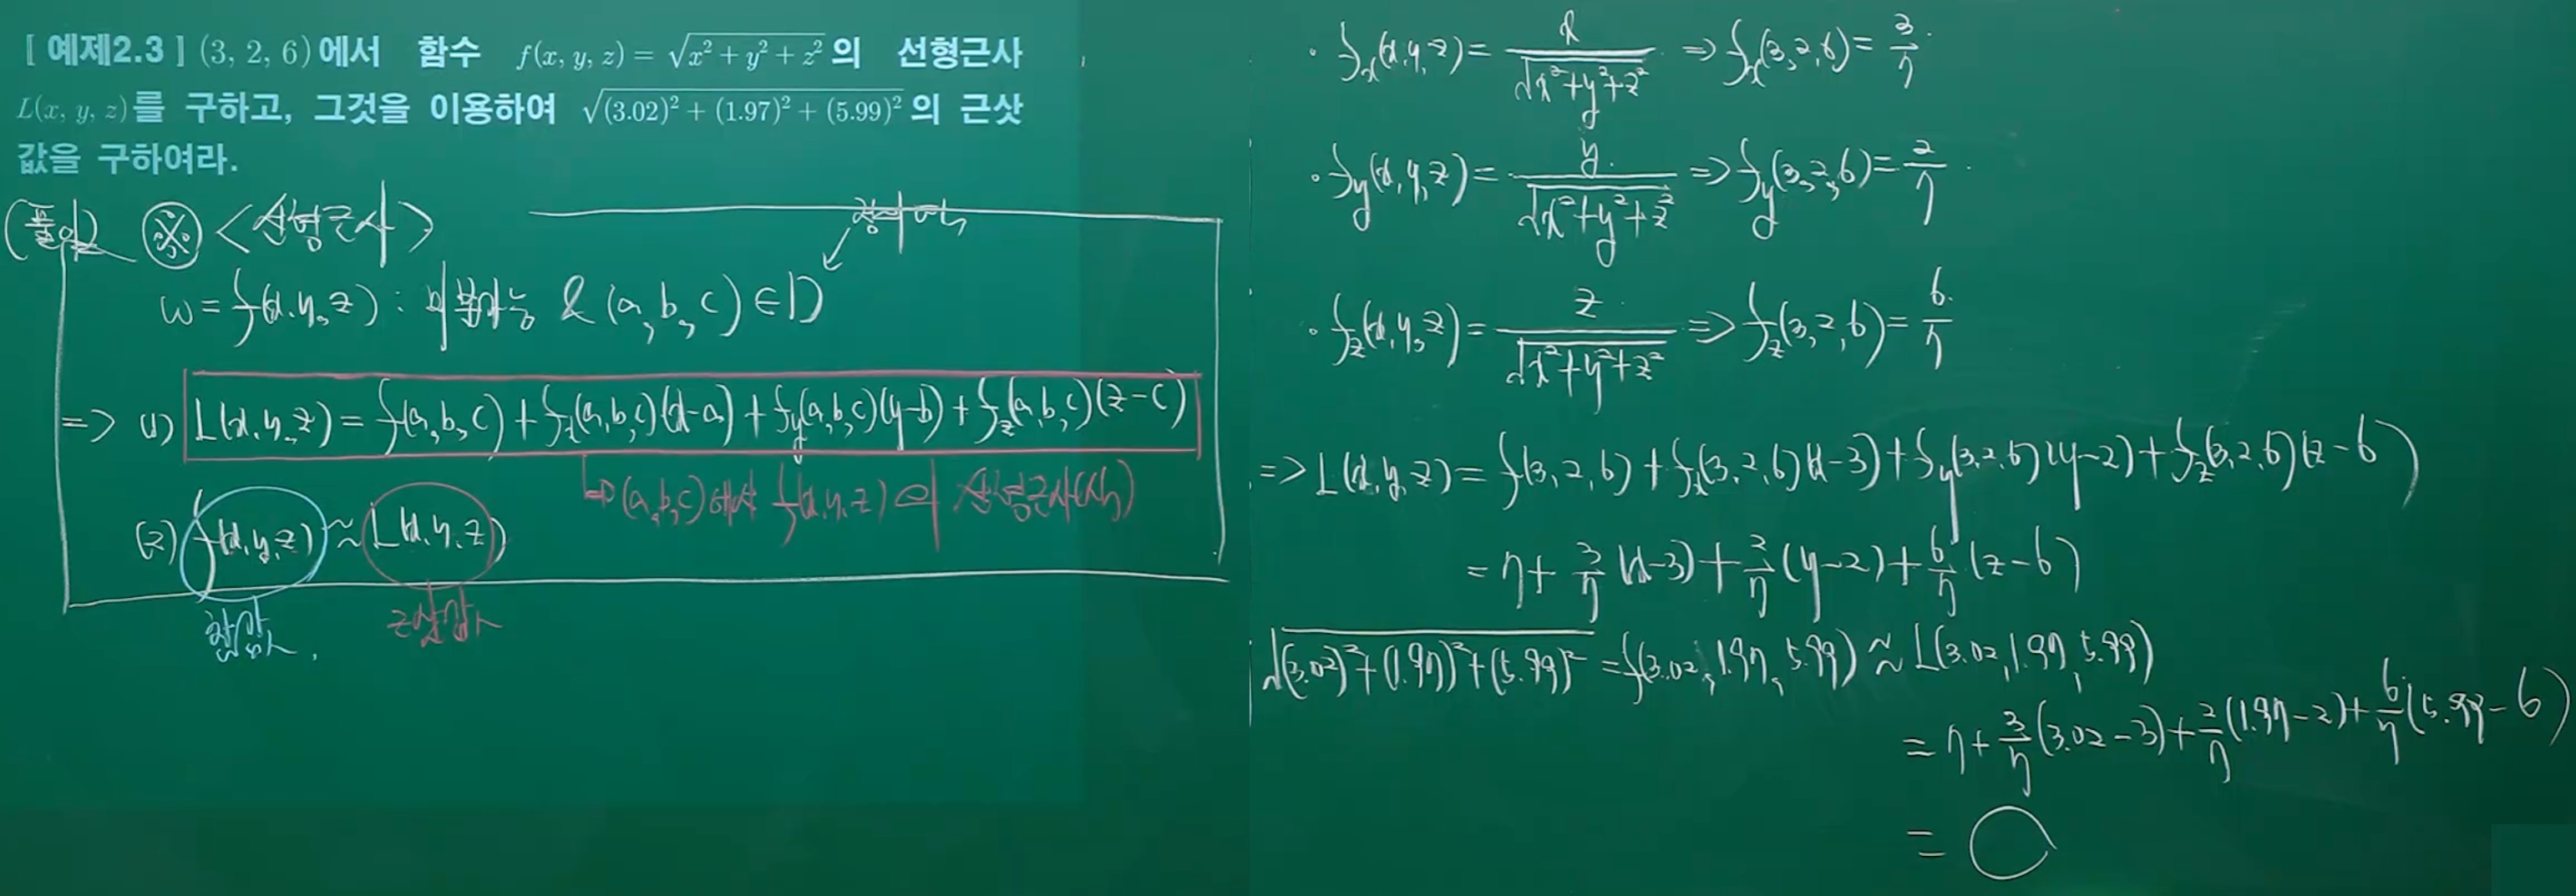 [ 예제2.3 ] (3, 2, 6)에서 함수 f(x, y, z) = √(x² + y² + z²) 의 선형근사
L(x, y, z)를 구하고, 그것을 이용하여 √((3.02)² + (1.97)² + (5.99)²) 의 근삿
값을 구하여라.
(풀이) ※ <선형근사>
정의역
w = f(x, y, z) : 미분가능 & (a, b, c) ∈ D
=> (1) L(x, y, z) = f(a, b, c) + f_x(a, b, c)(x-a) + f_y(a, b, c)(y-b) + f_z(a, b, c)(z-c)
(a, b, c)에서 f(x, y, z)의 선형근사(식)
(2) f(x, y, z) ≈ L(x, y, z)
참값 근삿값
· f_x(x, y, z) = x/√(x²+y²+z²) => f_x(3, 2, 6) = 3/7
· f_y(x, y, z) = y/√(x²+y²+z²) => f_y(3, 2, 6) = 2/7
· f_z(x, y, z) = z/√(x²+y²+z²) => f_z(3, 2, 6) = 6/7
=> L(x, y, z) = f(3, 2, 6) + f_x(3, 2, 6)(x-3) + f_y(3, 2, 6)(y-2) + f_z(3, 2, 6)(z-6)
= 7 + 3/7 (x-3) + 2/7 (y-2) + 6/7 (z-6)
√((3.02)²+(1.97)²+(5.99)²) = f(3.02, 1.97, 5.99) ≈ L(3.02, 1.97, 5.99)
= 7 + 3/7 (3.02-3) + 2/7 (1.97-2) + 6/7 (5.99-6)
= ○